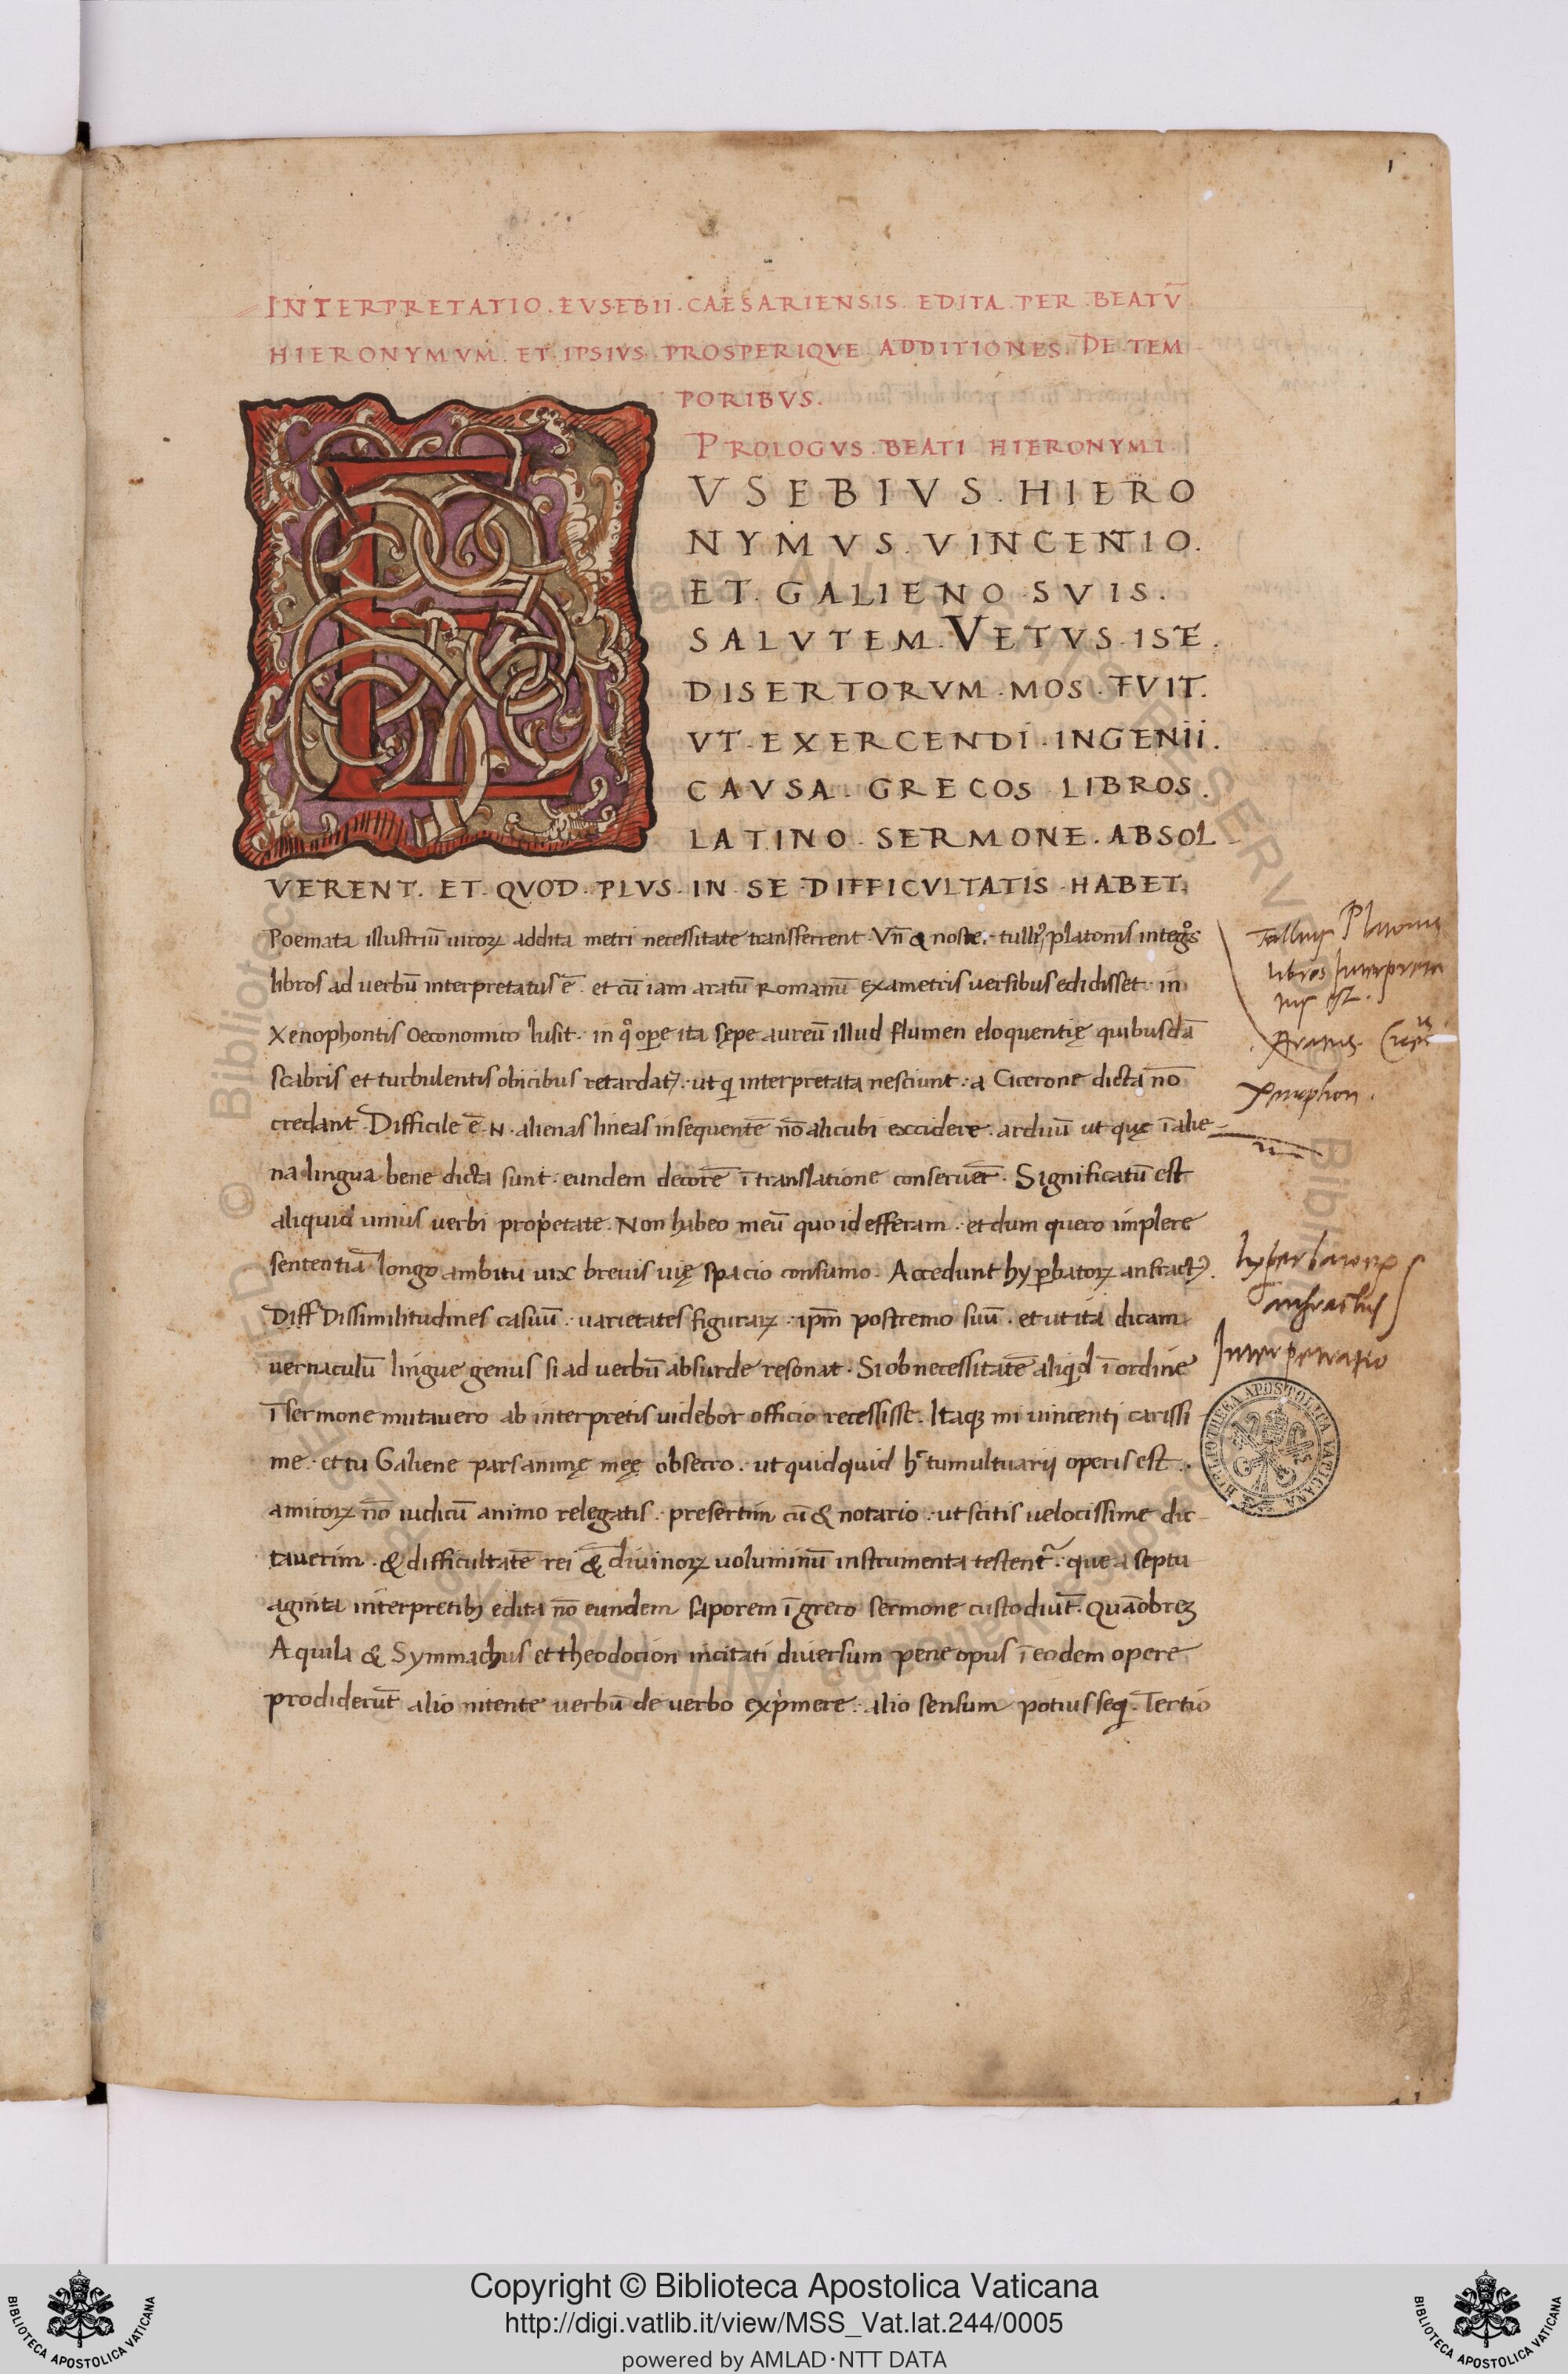 1
INTERPRETATIO . EVSEBII . CAESARIENSIS . EDITA . PER . BEATV̄
HIERONYMVM . ET . IPSIVS . PROSPERIQVE . ADDITIONES . DE . TEM
PORIBVS .
PROLOGVS . BEATI . HIERONYMI .
EVSEBIVS . HIERO
NYMVS . VINCENTIO .
ET . GALIENO . SVIS .
SALVTEM . VETVS . ISE .
DISERTORVM . MOS . FVIT .
VT . EXERCENDI . INGENII .
CAVSA . GRECOS LIBROS .
LATINO . SERMONE . ABSOL
VERENT . ET . QVOD . PLVS . IN . SE . DIFFICVLTATIS . HABET .
Poemata illustriū uiroꝝ addita metri necessitate transferrent. Vn̄ & noster. tulliꝰ platonis integͦs
libros ad uerbū interpretatus ē. et cū iam aratū Romanū exametris uersibus edidisset. in
Xenophontis Oeconomico lusit. in qͦ oꝑe ita sępe aureū illud flumen eloquentię quibusdā
scabris et turbulentis obicibus retardat᷑. ut qi interpretata nesciunt. a Cicerone dicta nō
credant. Difficile ē .N. alienas lineas insequentē nō alicubi excidere. arduū ut quę ī alie
na lingua bene dicta sunt. eundem decorē ī translatione conseruēt. Significatū est
aliquid unius uerbi prop̍etate. Non habeo meū quo id efferam. et dum quero implere
sententiā longo ambitu uix breuis uię spacio consumo. Accedunt hyꝑbatoꝝ anfractꝰ.
Diff Dissimilitudines casuū. uarietates figuraꝝ. ipm̄ postremo suū. et ut ita dicam
uernaculū lingue genus si ad uerbū absurde resonat. Si ob necessitatē aliqid ī ordine
ī sermone mutauero ab interpretis uidebor officio recessisse. Itaqꝫ mi uincenti carissi
me. et tu Galiene pars animę meę obsecro. ut quidquid hͨ tumultuarij operis est.
amicoꝝ nō iudicū animo relegatis. presertim cū & notario. ut scitis uelocissime dic-
tauerim. & difficultatē rei & diuinoꝝ uoluminū instrumenta testent᷑. que a septu
aginta interpretibꝫ edita nō eundem saporem ī greco sermone custodiūt. Quāobreꝫ
Aquila & Symmachus et theodocion incitati diuersum pene opus ī eodem opere
prodiderūt alio nitente uerbū de uerbo exp̍mere. alio sensum potius seqi. Tertio
Tullius Platonis
libros Interpreta
tus est.
Aratus.
Xenophon.
hyperbatoꝝ
anfractus
Interpretatio
BIBLIOTHECA APOSTOLICA VATICANA
Copyright © Biblioteca Apostolica Vaticana
http://digi.vatlib.it/view/MSS_Vat.lat.244/0005
powered by AMLAD·NTT DATA
BIBLIOTECA APOSTOLICA VATICANA
BIBLIOTECA APOSTOLICA VATICANA